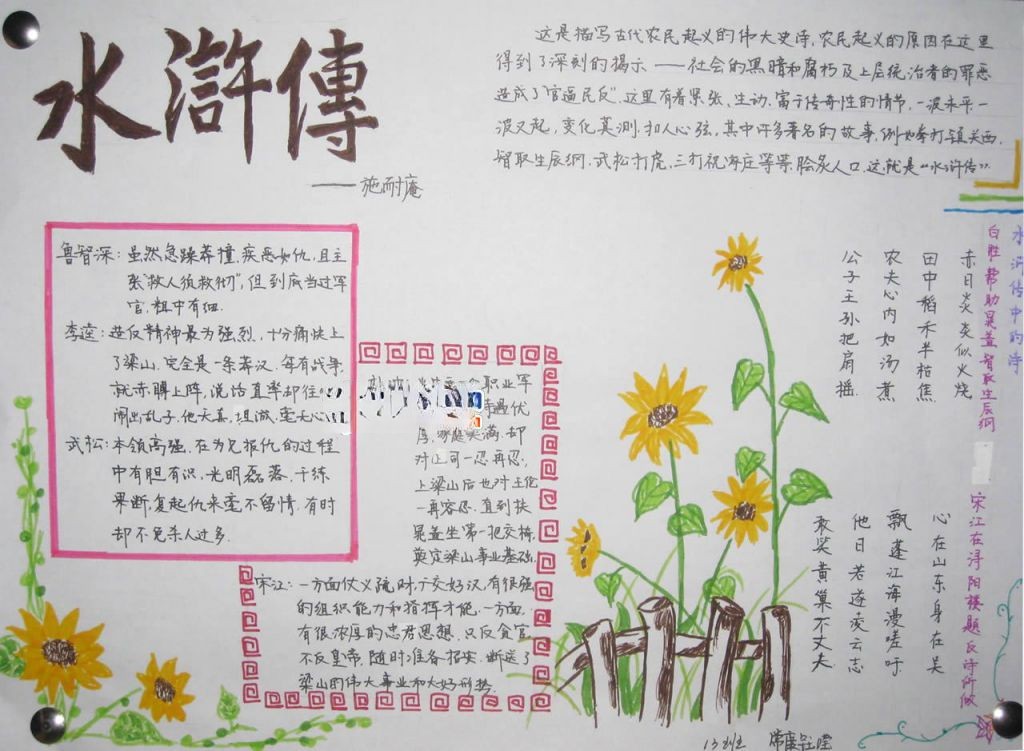 水滸傳
——施耐庵
这是描写古代农民起义的伟大史诗，农民起义的原因在这里
得到了深刻的揭示——社会的黑暗和腐朽及上层统治者的罪恶
造成了"官逼民反".这里有着紧张、生动、富于传奇性的情节,一波未平一
波又起,变化莫测,扣人心弦,其中许多著名的故事,例如拳打镇关西,
智取生辰纲,武松打虎,三打祝家庄等等,脍炙人口.这就是"水浒传".
鲁智深:虽然急躁莽撞,疾恶如仇,且主
张"救人须救彻",但到底当过军
官,粗中有细.
李逵:造反精神最为强烈,十分痛快上
了梁山,完全是一条莽汉.每有战事,
就赤膊上阵,说话直率却往
闹出乱子.他天真,粗鲁,毫无心
武松:本领高强,在为兄报仇的过程
中有胆有识,光明磊落,干练
果断,复起仇来毫不留情,有时
却不免杀人过多.
职业军
遇优
厚,家庭美满,却
对上司一忍再忍,
上梁山后也对王伦
一再容忍.直到扶
晁盖坐第一把交椅,
奠定梁山事业基础.
宋江:一方面仗义疏财,广交好汉,有很强
的组织能力和指挥才能.一方面,
有很浓厚的忠君思想,只反贪官,
不反皇帝,随时准备招安,断送了
梁山的伟大事业和大好形势.
水浒传中的诗
白胜帮助晁盖智取生辰纲
赤日炎炎似火烧
田中稻禾半枯焦
农夫心内如汤煮
公子王孙把扇摇
宋江在浔阳楼题反诗所做
心在山东身在吴
飘蓬江海漫嗟吁
他日若遂凌云志
敢笑黄巢不丈夫
13班